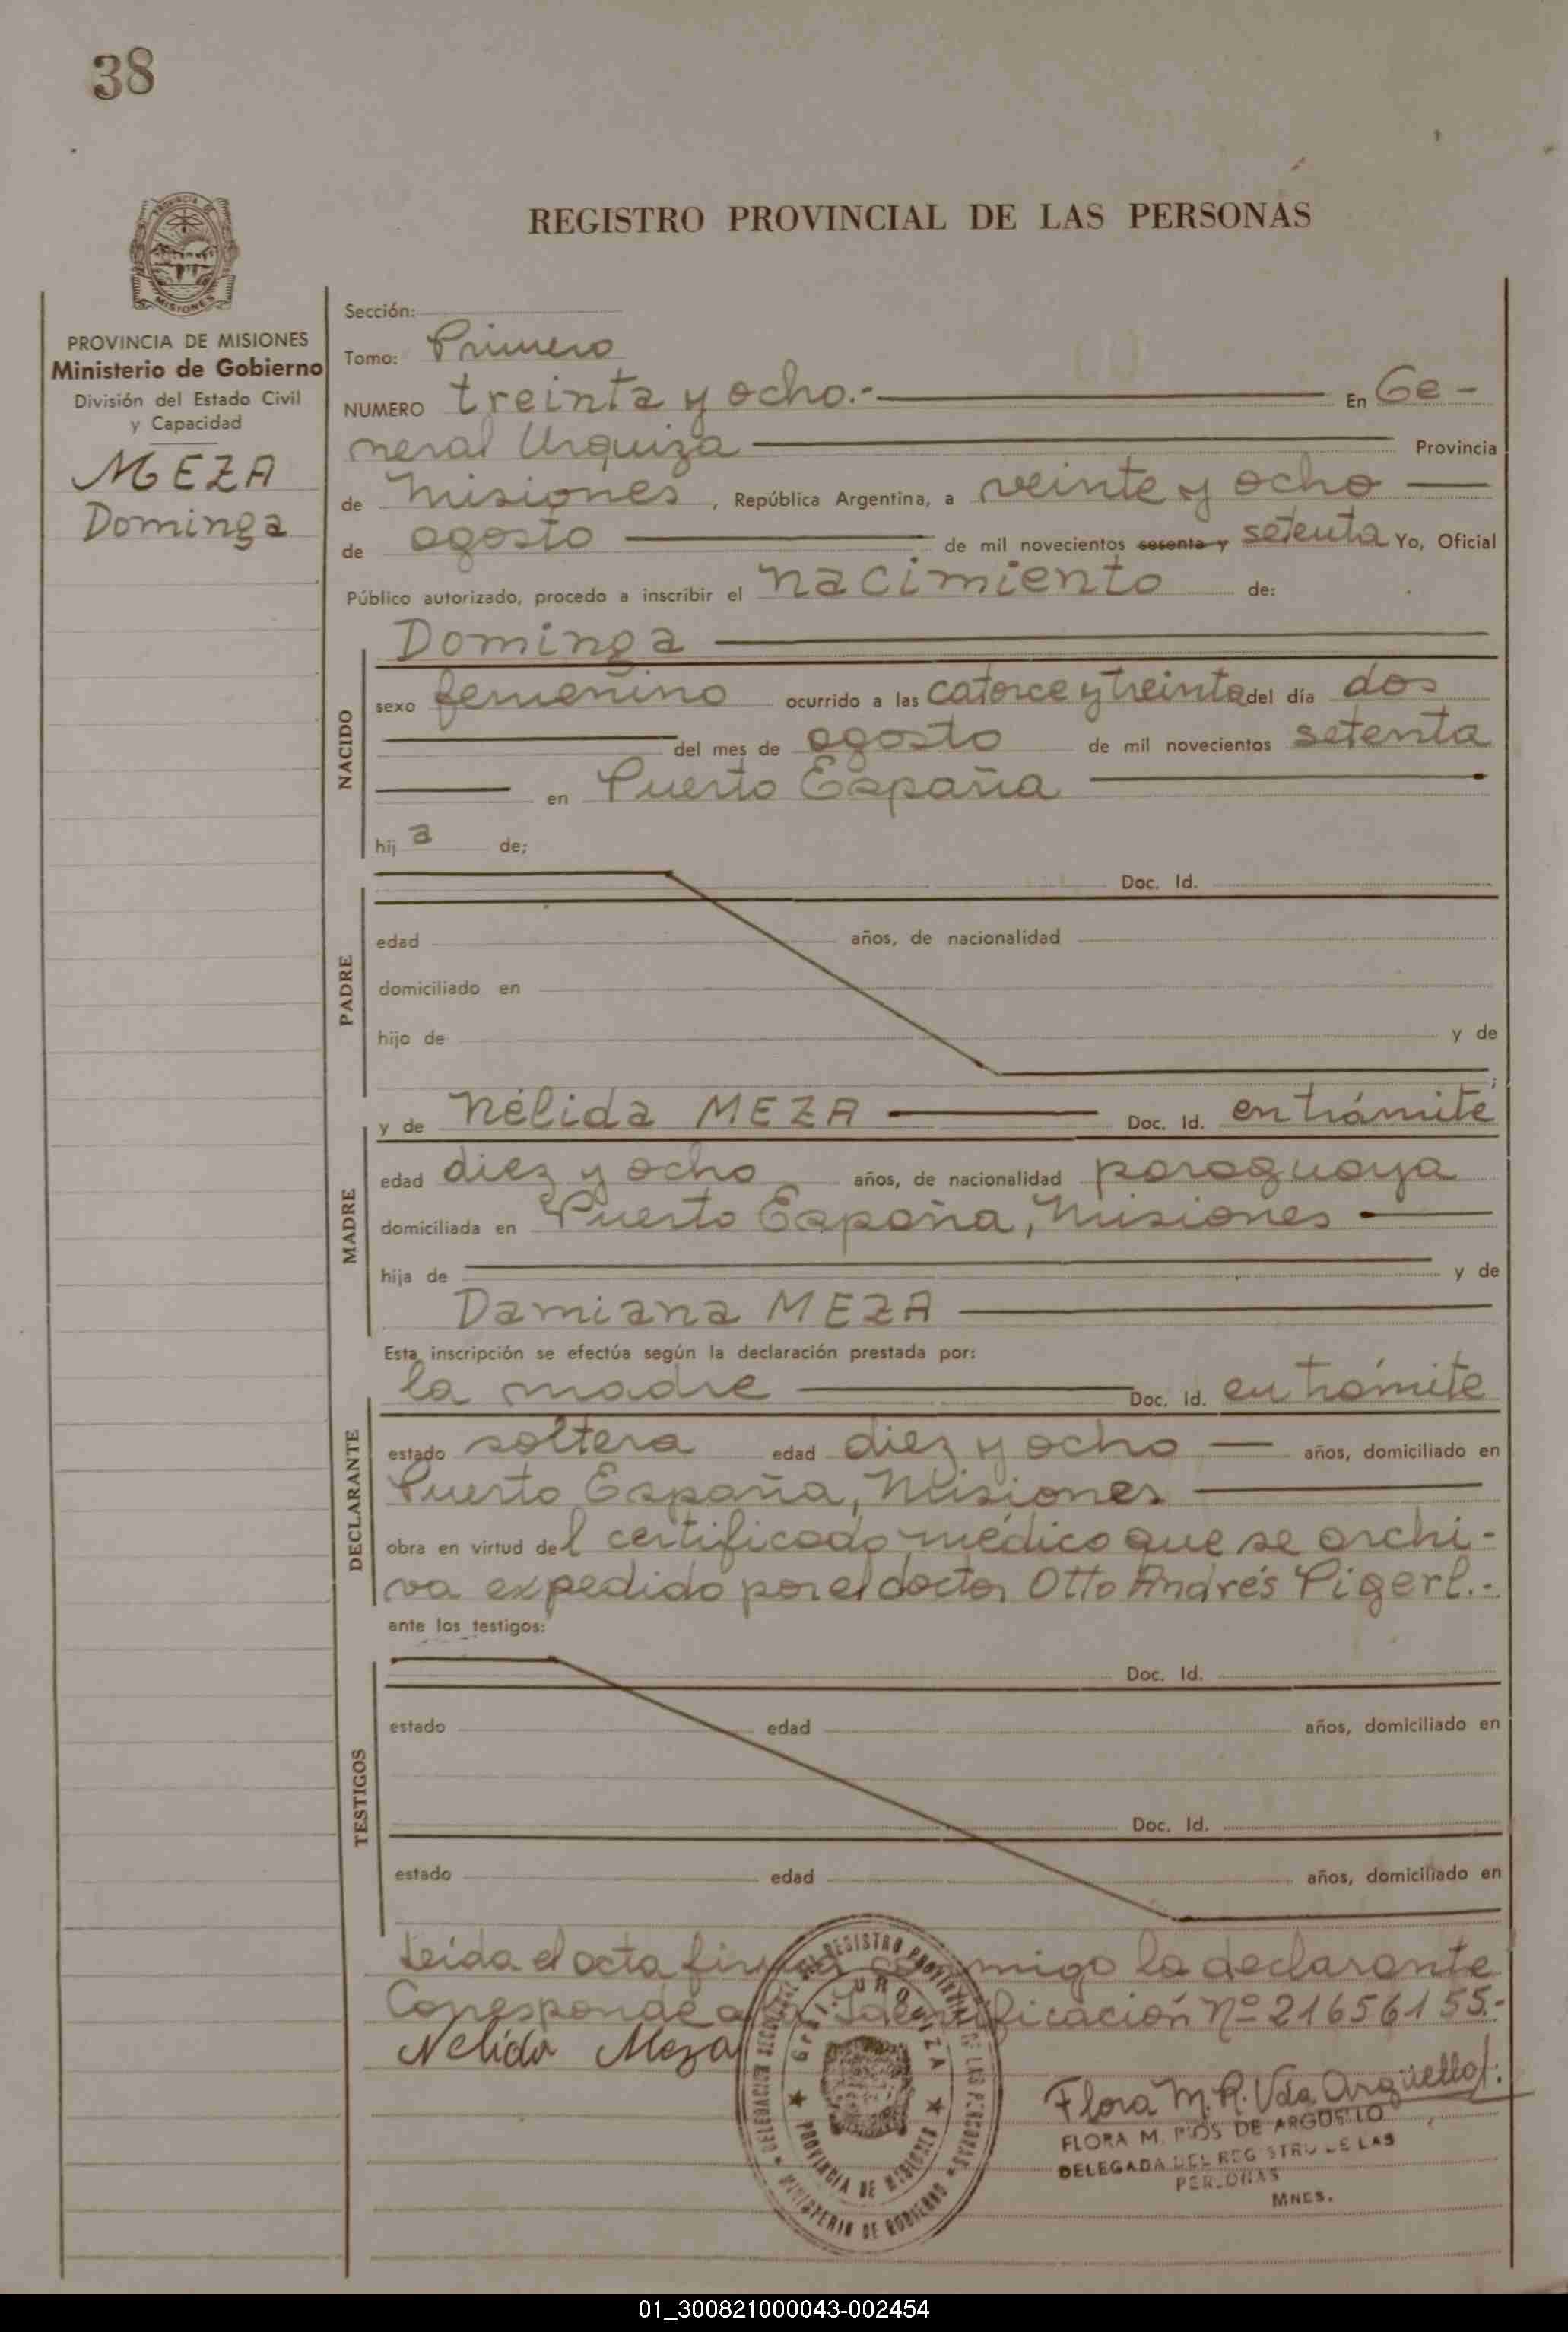 38
REGISTRO PROVINCIAL DE LAS PERSONAS
MISIONES
PROVINCIA DE MISIONES
Ministerio de Gobierno
División del Estado Civil
y Capacidad
MEZA
Dominga
Sección:
Tomo: Primero
NUMERO treinta y ocho.- En Ge-
neral Urquiza Provincia
de Misiones, República Argentina, a veinte y ocho
de agosto de mil novecientos sesenta y setenta Yo, Oficial
Público autorizado, procedo a inscribir el nacimiento de:
Dominga
NACIDO
sexo femenino ocurrido a las catorce y treinta del día dos
del mes de agosto de mil novecientos setenta
en Puerto España
hij a de;
PADRE
Doc. Id.
edad años, de nacionalidad
domiciliado en
hijo de y de
y de Nélida MEZA Doc. Id. en trámite
MADRE
edad diez y ocho años, de nacionalidad paraguaya
domiciliada en Puerto España, Misiones
hija de y de
Damiana MEZA
Esta inscripción se efectúa según la declaración prestada por:
la madre Doc. Id. en trámite
DECLARANTE
estado soltera edad diez y ocho años, domiciliado en
Puerto España, Misiones
obra en virtud del certificado médico que se archi-
va expedido por el doctor Otto Andrés Pigerl.-
ante los testigos:
TESTIGOS
Doc. Id.
estado edad años, domiciliado en
Doc. Id.
estado edad años, domiciliado en
Leída el acta firma conmigo la declarante
Corresponde a la Identificación Nº 21656155.-
Nelida Meza
GRAL. URQUIZA
PROVINCIA DE MISIONES
MINISTERIO DE GOBIERNO
Flora M. R. Vda Argüello
FLORA M. RIOS DE ARGUELLO
DELEGADA DEL REGISTRO DE LAS
PERSONAS
MNES.
01_300821000043-002454